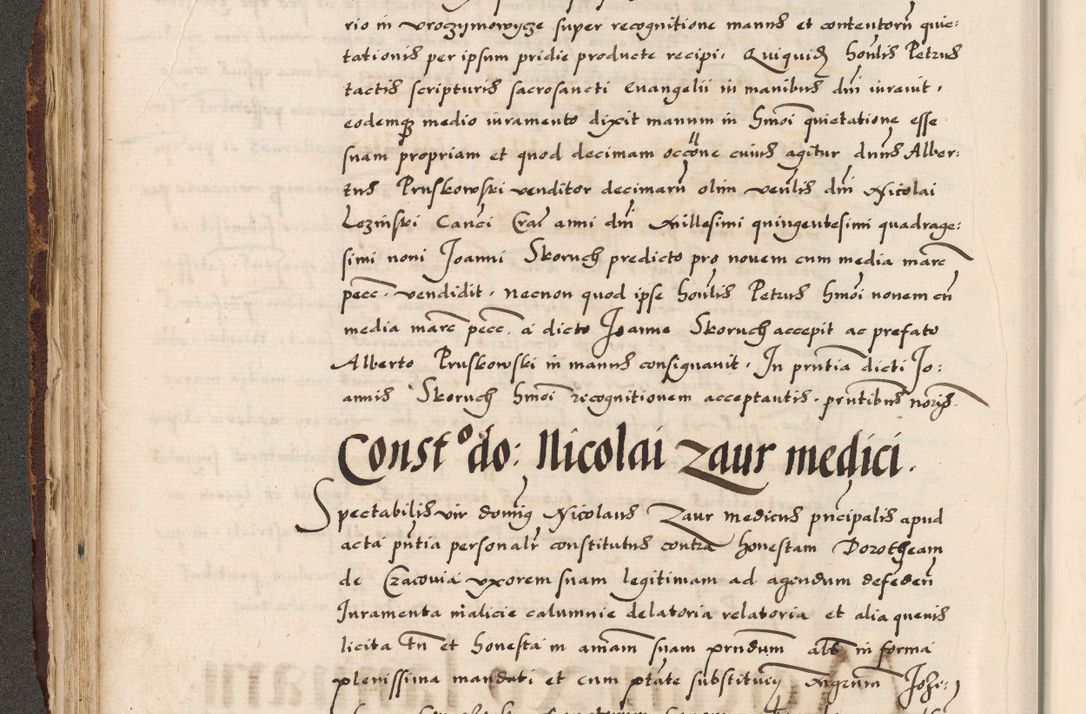 rio in Uroczymowycze super recognitione manus et contentorũ quie:
tationis per ipsum pridie producte recipi. Quiquid honlis Petrus
tactis scripturis sacrosancti Euangelii in manibus dni iurauit.
eodemque medio iuramento dixit manum in hmoi quietatione esse
suam propriam et quod decimam occone cuius agitur dnus Alber:
tus Pruskowski venditor decimarũ olim venlis dni Nicolai
Lezinski Canci Crac anni dni Millesimi quingentesimi quadrage:
simi noni Joanni Skoruch predicto pro nouem cum media marc
pecc. vendidit. necnon quod ipse honlis Petrus hmoi nouem cũ
media marc pecc. a dicto Joanne Skoruch accepit ac prefato
Alberto Pruskowski in manus consignauit. In pritia dicti Jo:
annis Skoruch hmoi recognitionem acceptantis. prntibus noris.
Const⁰ do: Nicolai Zaur medici.
Spectabilis vir domig Nicolaus Zaur medicus pncipalis apud
acta pntia personalr constitutus contra honestam Dorotheam
de Cracouia uxorem suam legitimam ad agendum defedeñ
Iuramenta malicie calumnie delatoria relatoria et alia queuis
licita tñ et honesta in amam suam prndum alt in forma
plenissima mandati et cum ptate substituẽ Mgrum Joh: